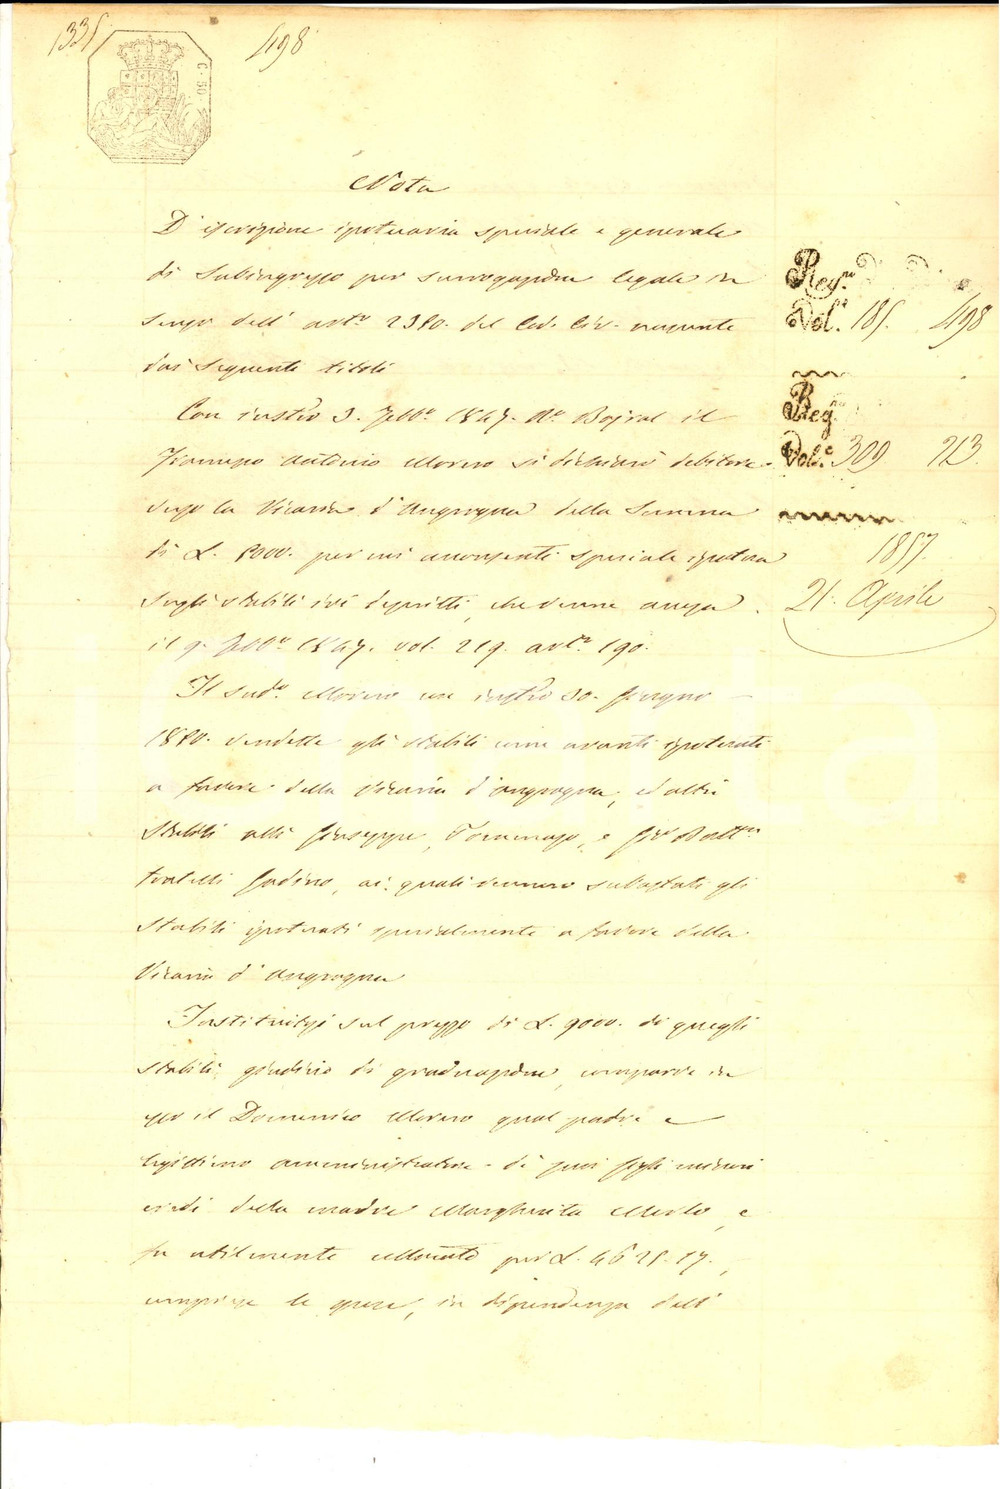 1335
498
C. 50
Nota
D'iscrizione ipotecaria speciale e generale
di subingresso per surrogazione legale in
senso dell' art.º 2350. del Cod. Civ. nascente
dai seguenti titoli
Con instr.º 3. Febb.º 1847. R.º Bojral il
Francesco Antonio Moreno si dichiarò debitore
verso la Vicaria d'Angrogna della Somma
di L. 8000. per cui acconsentì speciale ipoteca
sugli stabili ivi descritti, che venne accesa
il 9. Febb.º 1847. vol. 219. art.º 190.
Il sud.º Moreno con instr.º 30. Giugno
1850. vendette gli stabili come avanti ipotecati
a favore della Vicaria d'Angrogna, ed altri
stabili alli Giuseppe, Tommaso, e Gio. Batt.ª
fratelli Godino, ai quali vennero subastati gli
stabili ipotecati specialmente a favore della
Vicaria d'Angrogna
Instituitosi sul prezzo di L. 9000. di quegli
stabili giudicio di graduazione, comparve in
esso il Domenico Moreno qual padre e
legittimo amministratore di suoi figli minori
eredi della madre Margherita Merlo, e
fu utilmente collocato per L. 4625. 17.,
comprese le spese, in dipendenza dell'
Reg.º
Vol.º 185. 498
Reg.
Vol.º 309 213.
1857.
21. Aprile